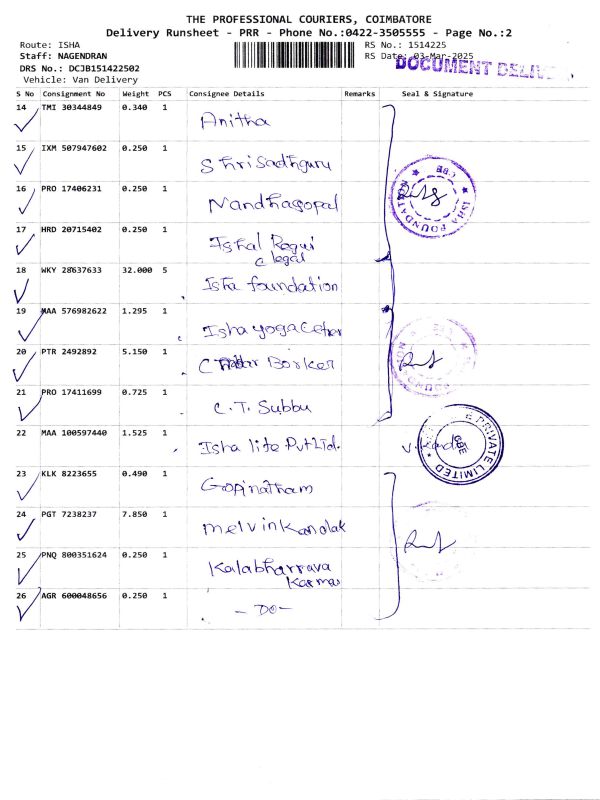 THE PROFESSIONAL COURIERS, COIMBATORE
Delivery Runsheet - PRR - Phone No.:0422-3505555 - Page No.:2
Route: ISHA RS No.: 1514225
Staff: NAGENDRAN RS Date: 03-Mar-2025
DOCUMENT
DRS No.: DCJB151422502
Vehicle: Van Delivery
S No Consignment No Weight PCS Consignee Details Remarks Seal & Signature
14 TMI 30344849 0.340 1 Anitha
15 IXM 507947602 0.250 1 Shri Sadhguru
16 PRO 17406231 0.250 1 Nandhagopal
ISHA FOUNDATION
CBE
17 HRD 20715402 0.250 1
legal
18 WKY 28637633 32.000 5 Isha foundation
19 MAA 576982622 1.295 1 Isha yoga
20 PTR 2492892 5.150 1 Borker
21 PRO 17411699 0.725 1 C.T. Subbu
22 MAA 100597440 1.525 1 Isha life Pvt Ltd.
PRIVATE LIMITED
CBE
23 KLK 8223655 0.490 1 Gopinatham
24 PGT 7238237 7.850 1 melvin
25 PNQ 800351624 0.250 1 Kalabharrava
Karma
26 AGR 600048656 0.250 1 - DO -